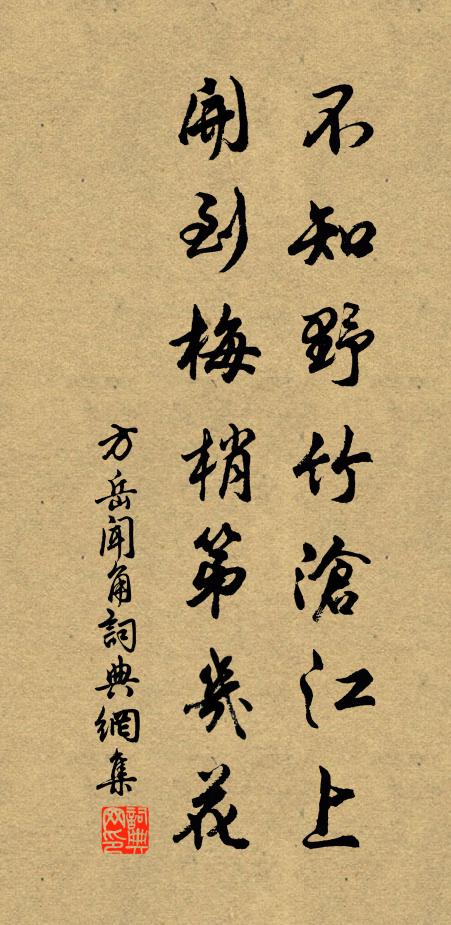 不知野竹滄江上
開到梅梢第幾花
方岳聞角詞典網集
詞典網印